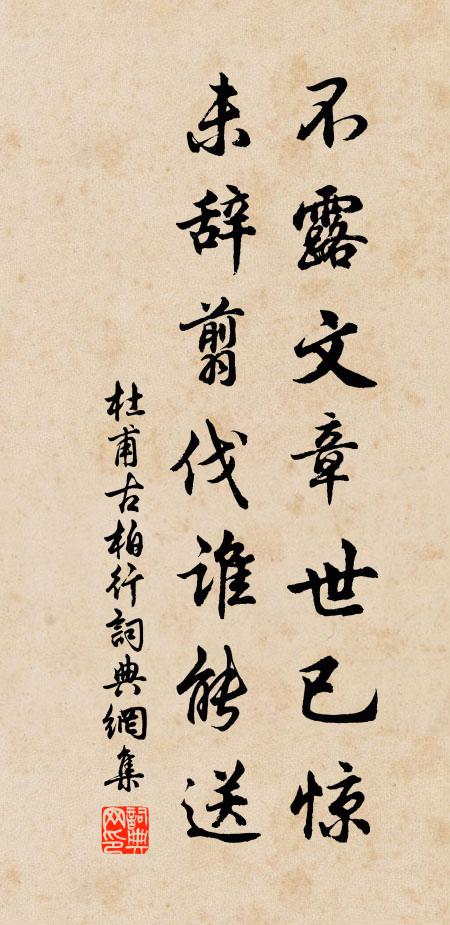 不露文章世已惊
未辞翦伐谁能送
杜甫古柏行詞典網集
詞典网印